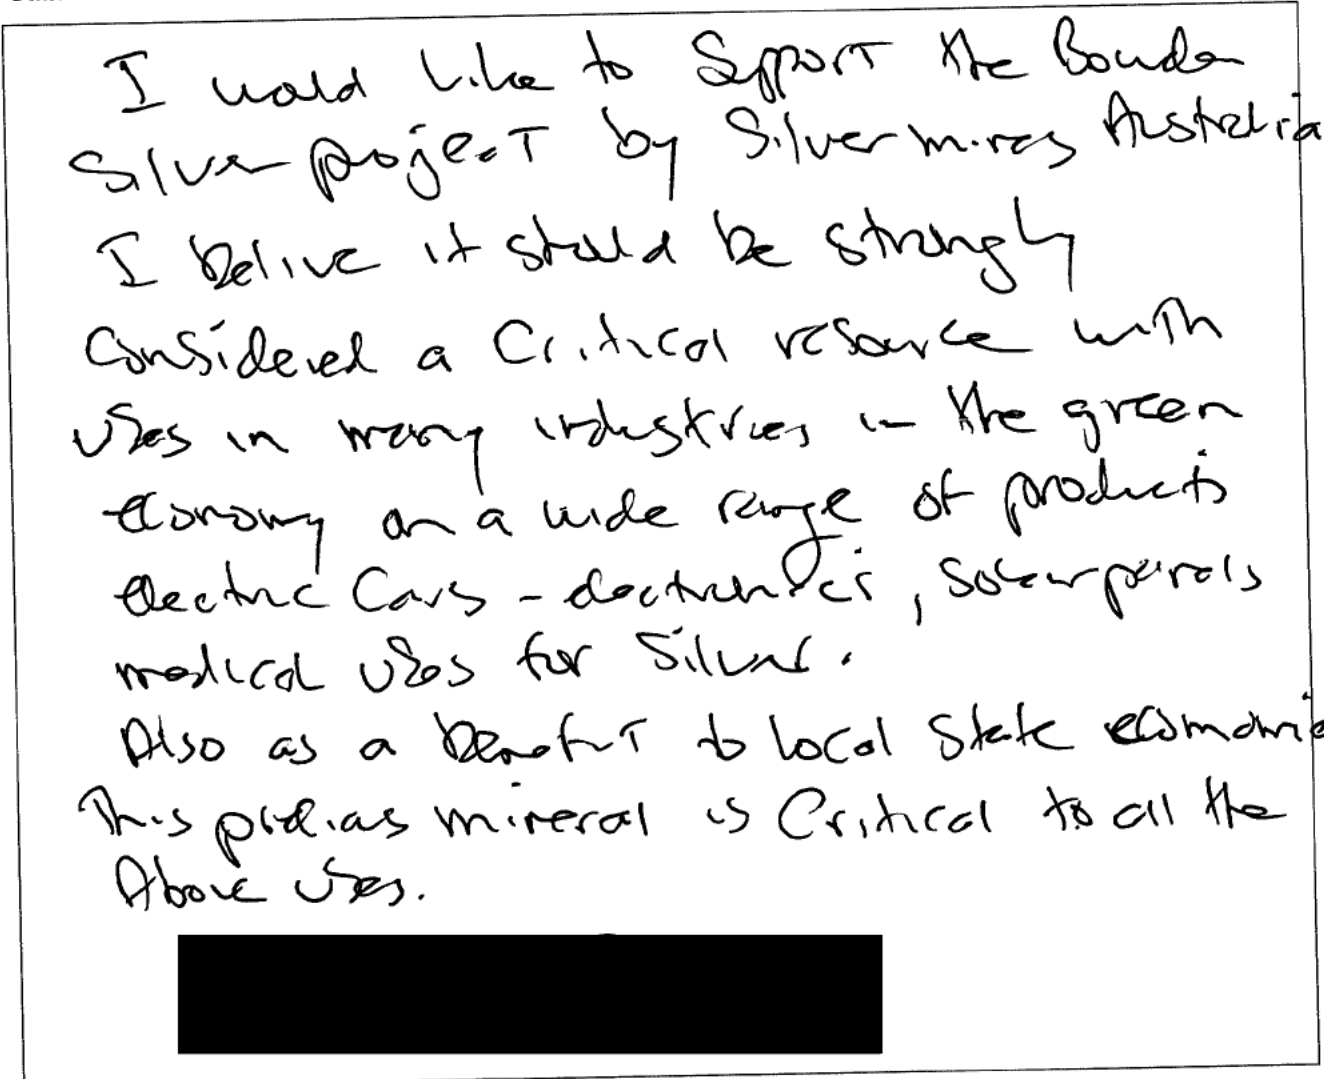 I would like to Support the Bowden
Silver project by Silver mines Australia
I Belive it should be strongly
Considered a Critical resource with
Uses in many industries in the green
economy on a wide range of products
electric Cars - electronics, Solar panels
medical Uses for Silver.
Also as a benefit to local State economie
This precious mineral is Critical to all the
Above Uses.